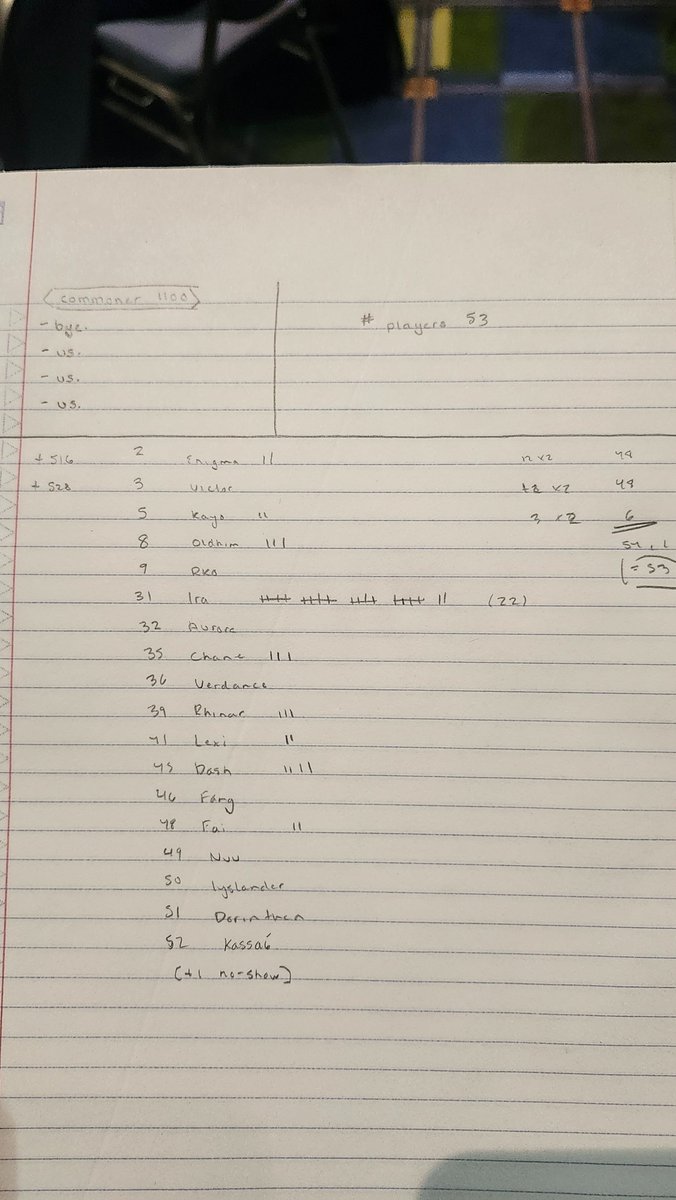 commoner 1100
- bye.
- vs.
- vs.
- vs.
# players 53
+ 516 2 Enigma || 12 x2 48
+ 528 3 Victor x2 48
5 Kayo || 3 x2 6
8 Oldhim ||| 54, 1
9 Rko = 53
31 Ira |||| |||| |||| |||| || (22)
32 Aurora
35 Chane |||
36 Verdance
39 Rhinar |||
41 Lexi ||
45 Dash ||||
46 Fang
48 Fai ||
49 Nuu
50 lyslander
51 Dorinthea
52 Kassai
[+1 no-show]